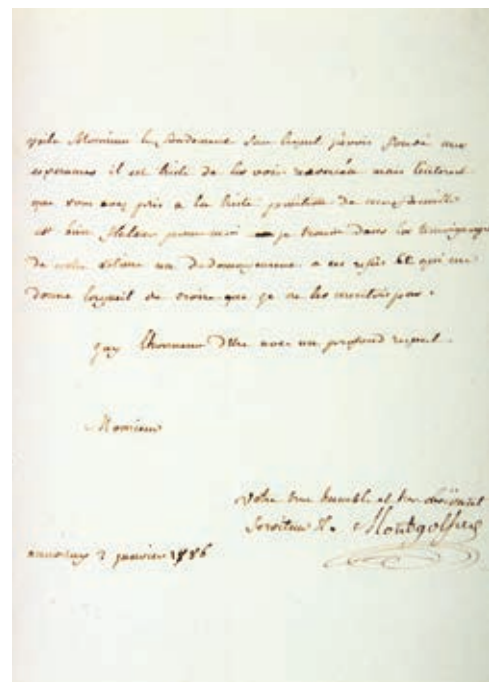 voila Monsieur le fondement sur lequel j'avois fondé mes
esperances il est triste de les voir renversées mais l'interest
que vous avez pris a la triste position de ma famille
est bien flateur pour moi je trouve dans les temoignages
de votre estime un dedomagement a ces refus et qui me
donne l'orgueil de croire que je ne les meritois pas.
jay l'honneur d'etre avec un profond respect
Monsieur
votre tres humble et tres obeissant
Serviteur Montgolfier
annonay 2 janvier 1786